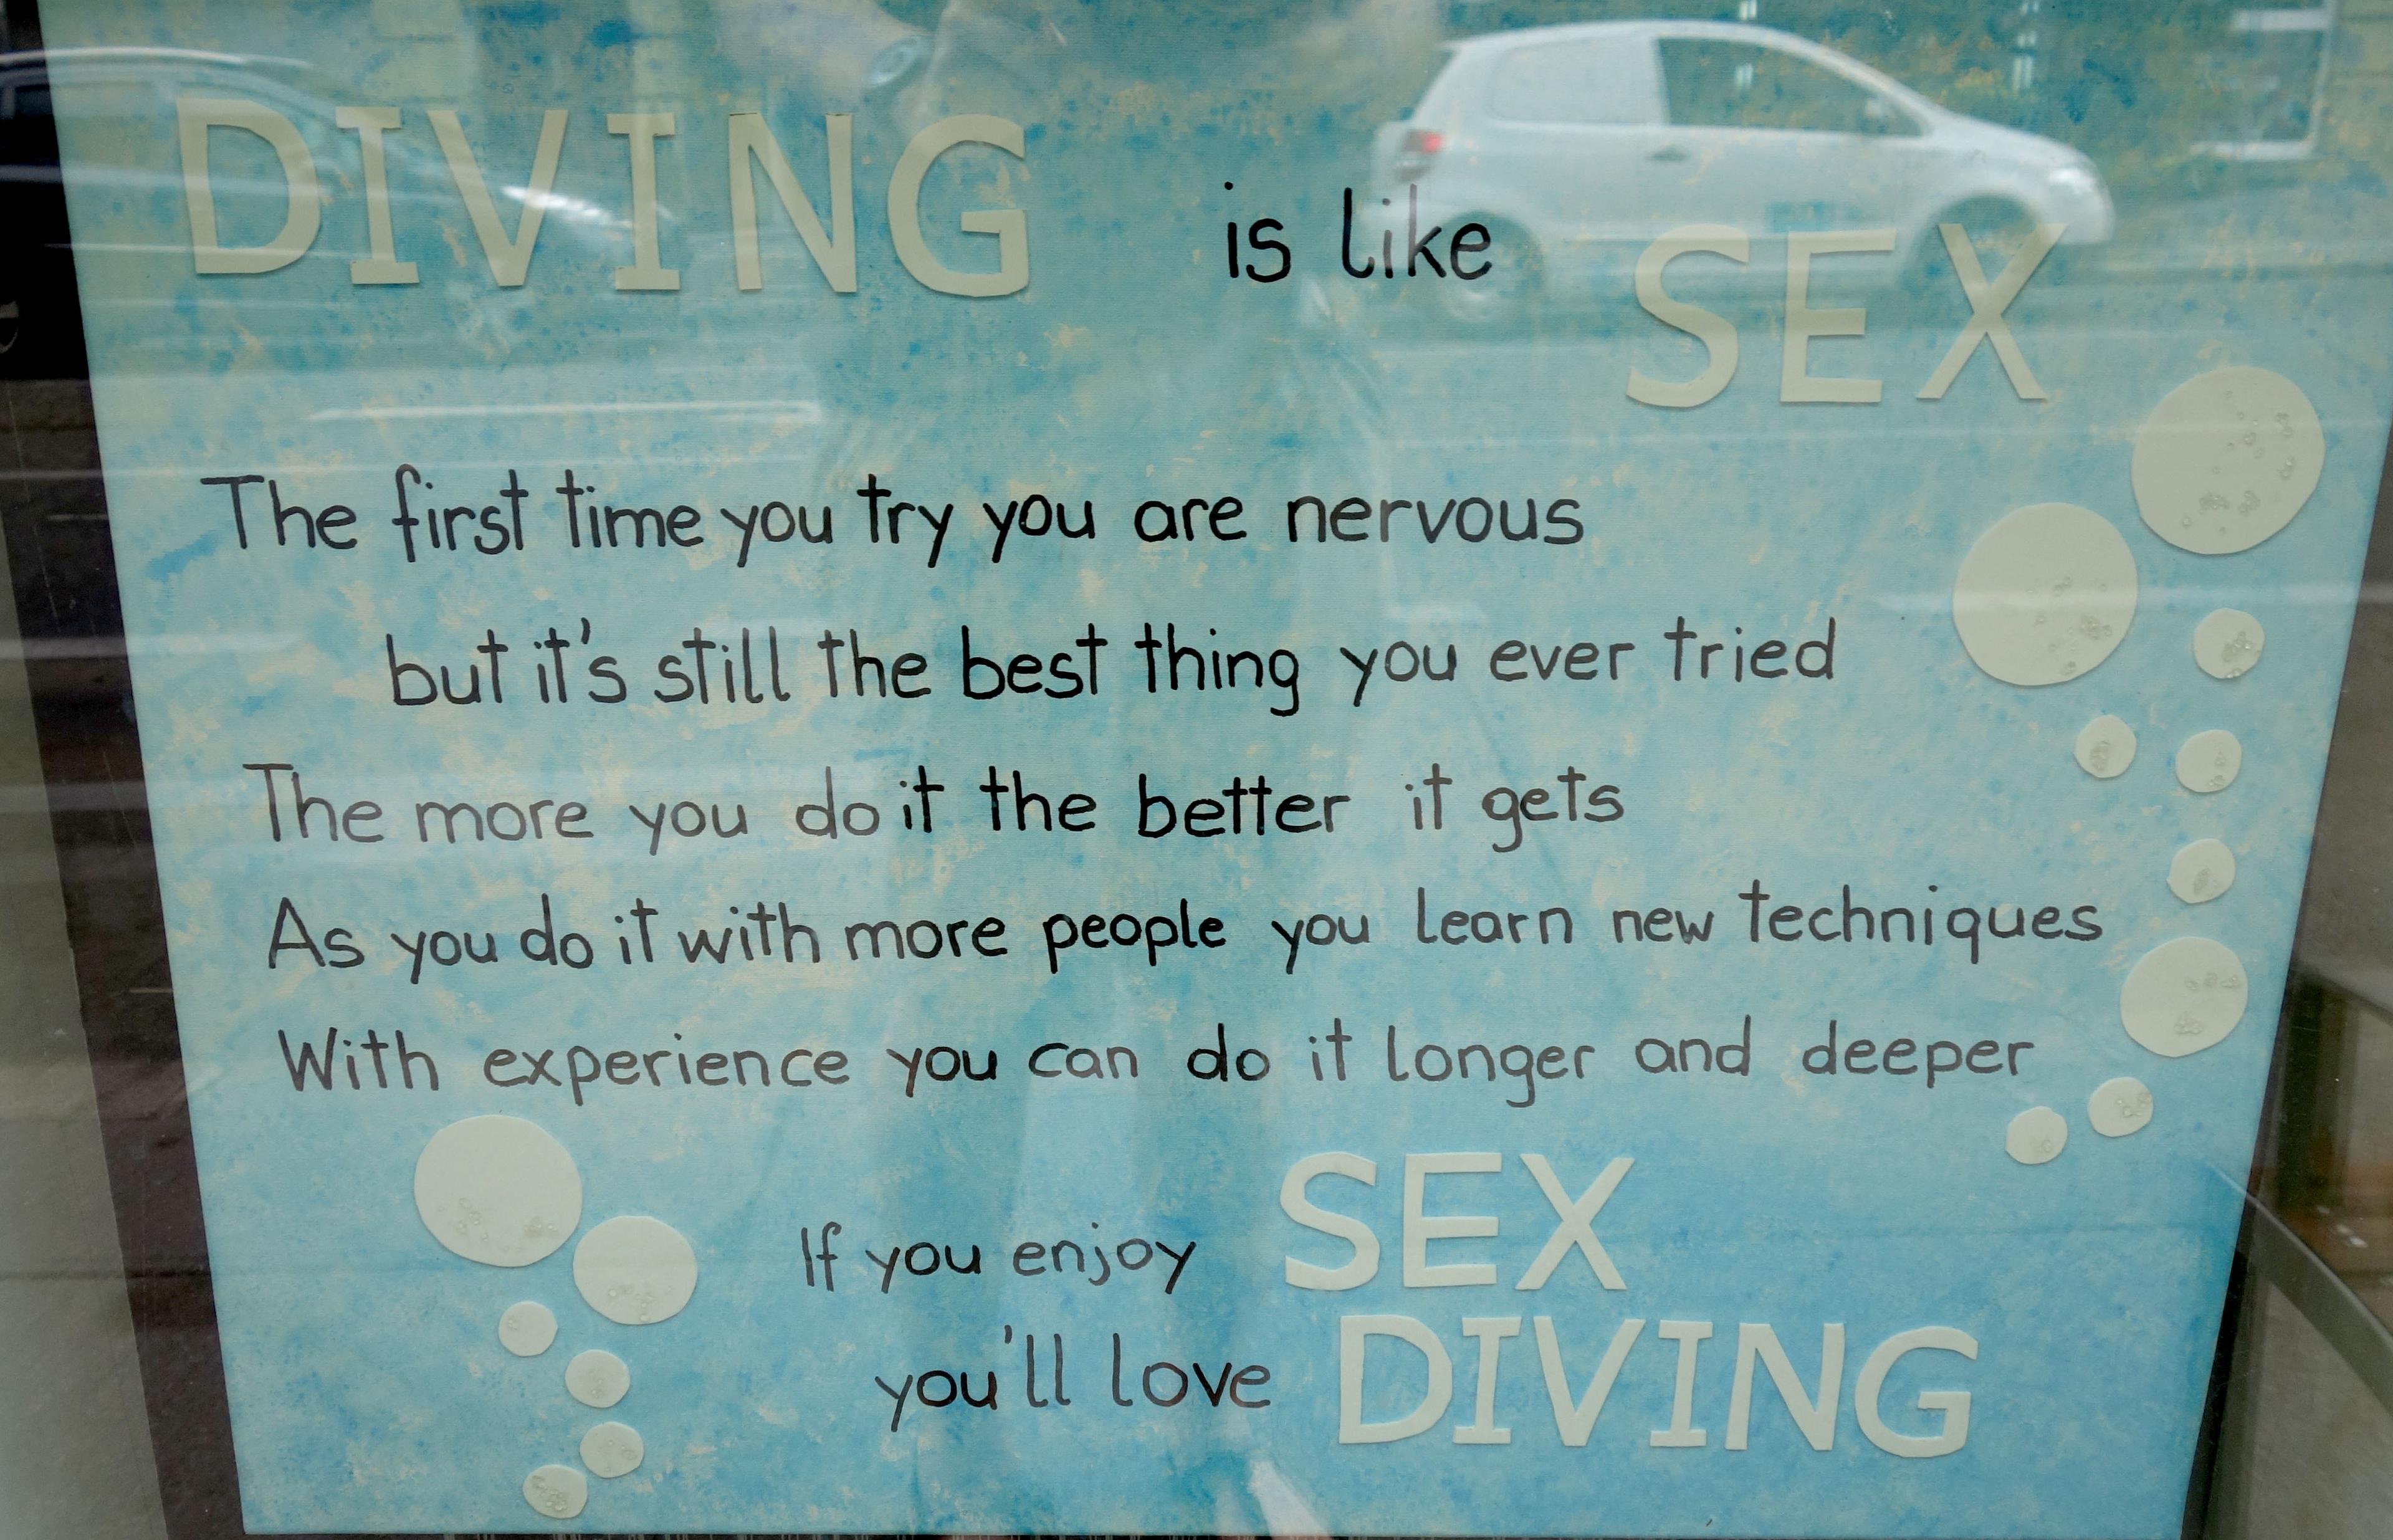 DIVING is like SEX
The first time you try you are nervous
but it's still the best thing you ever tried
The more you do it the better it gets
As you do it with more people you learn new techniques
With experience you can do it longer and deeper
If you enjoy SEX
you'll love DIVING